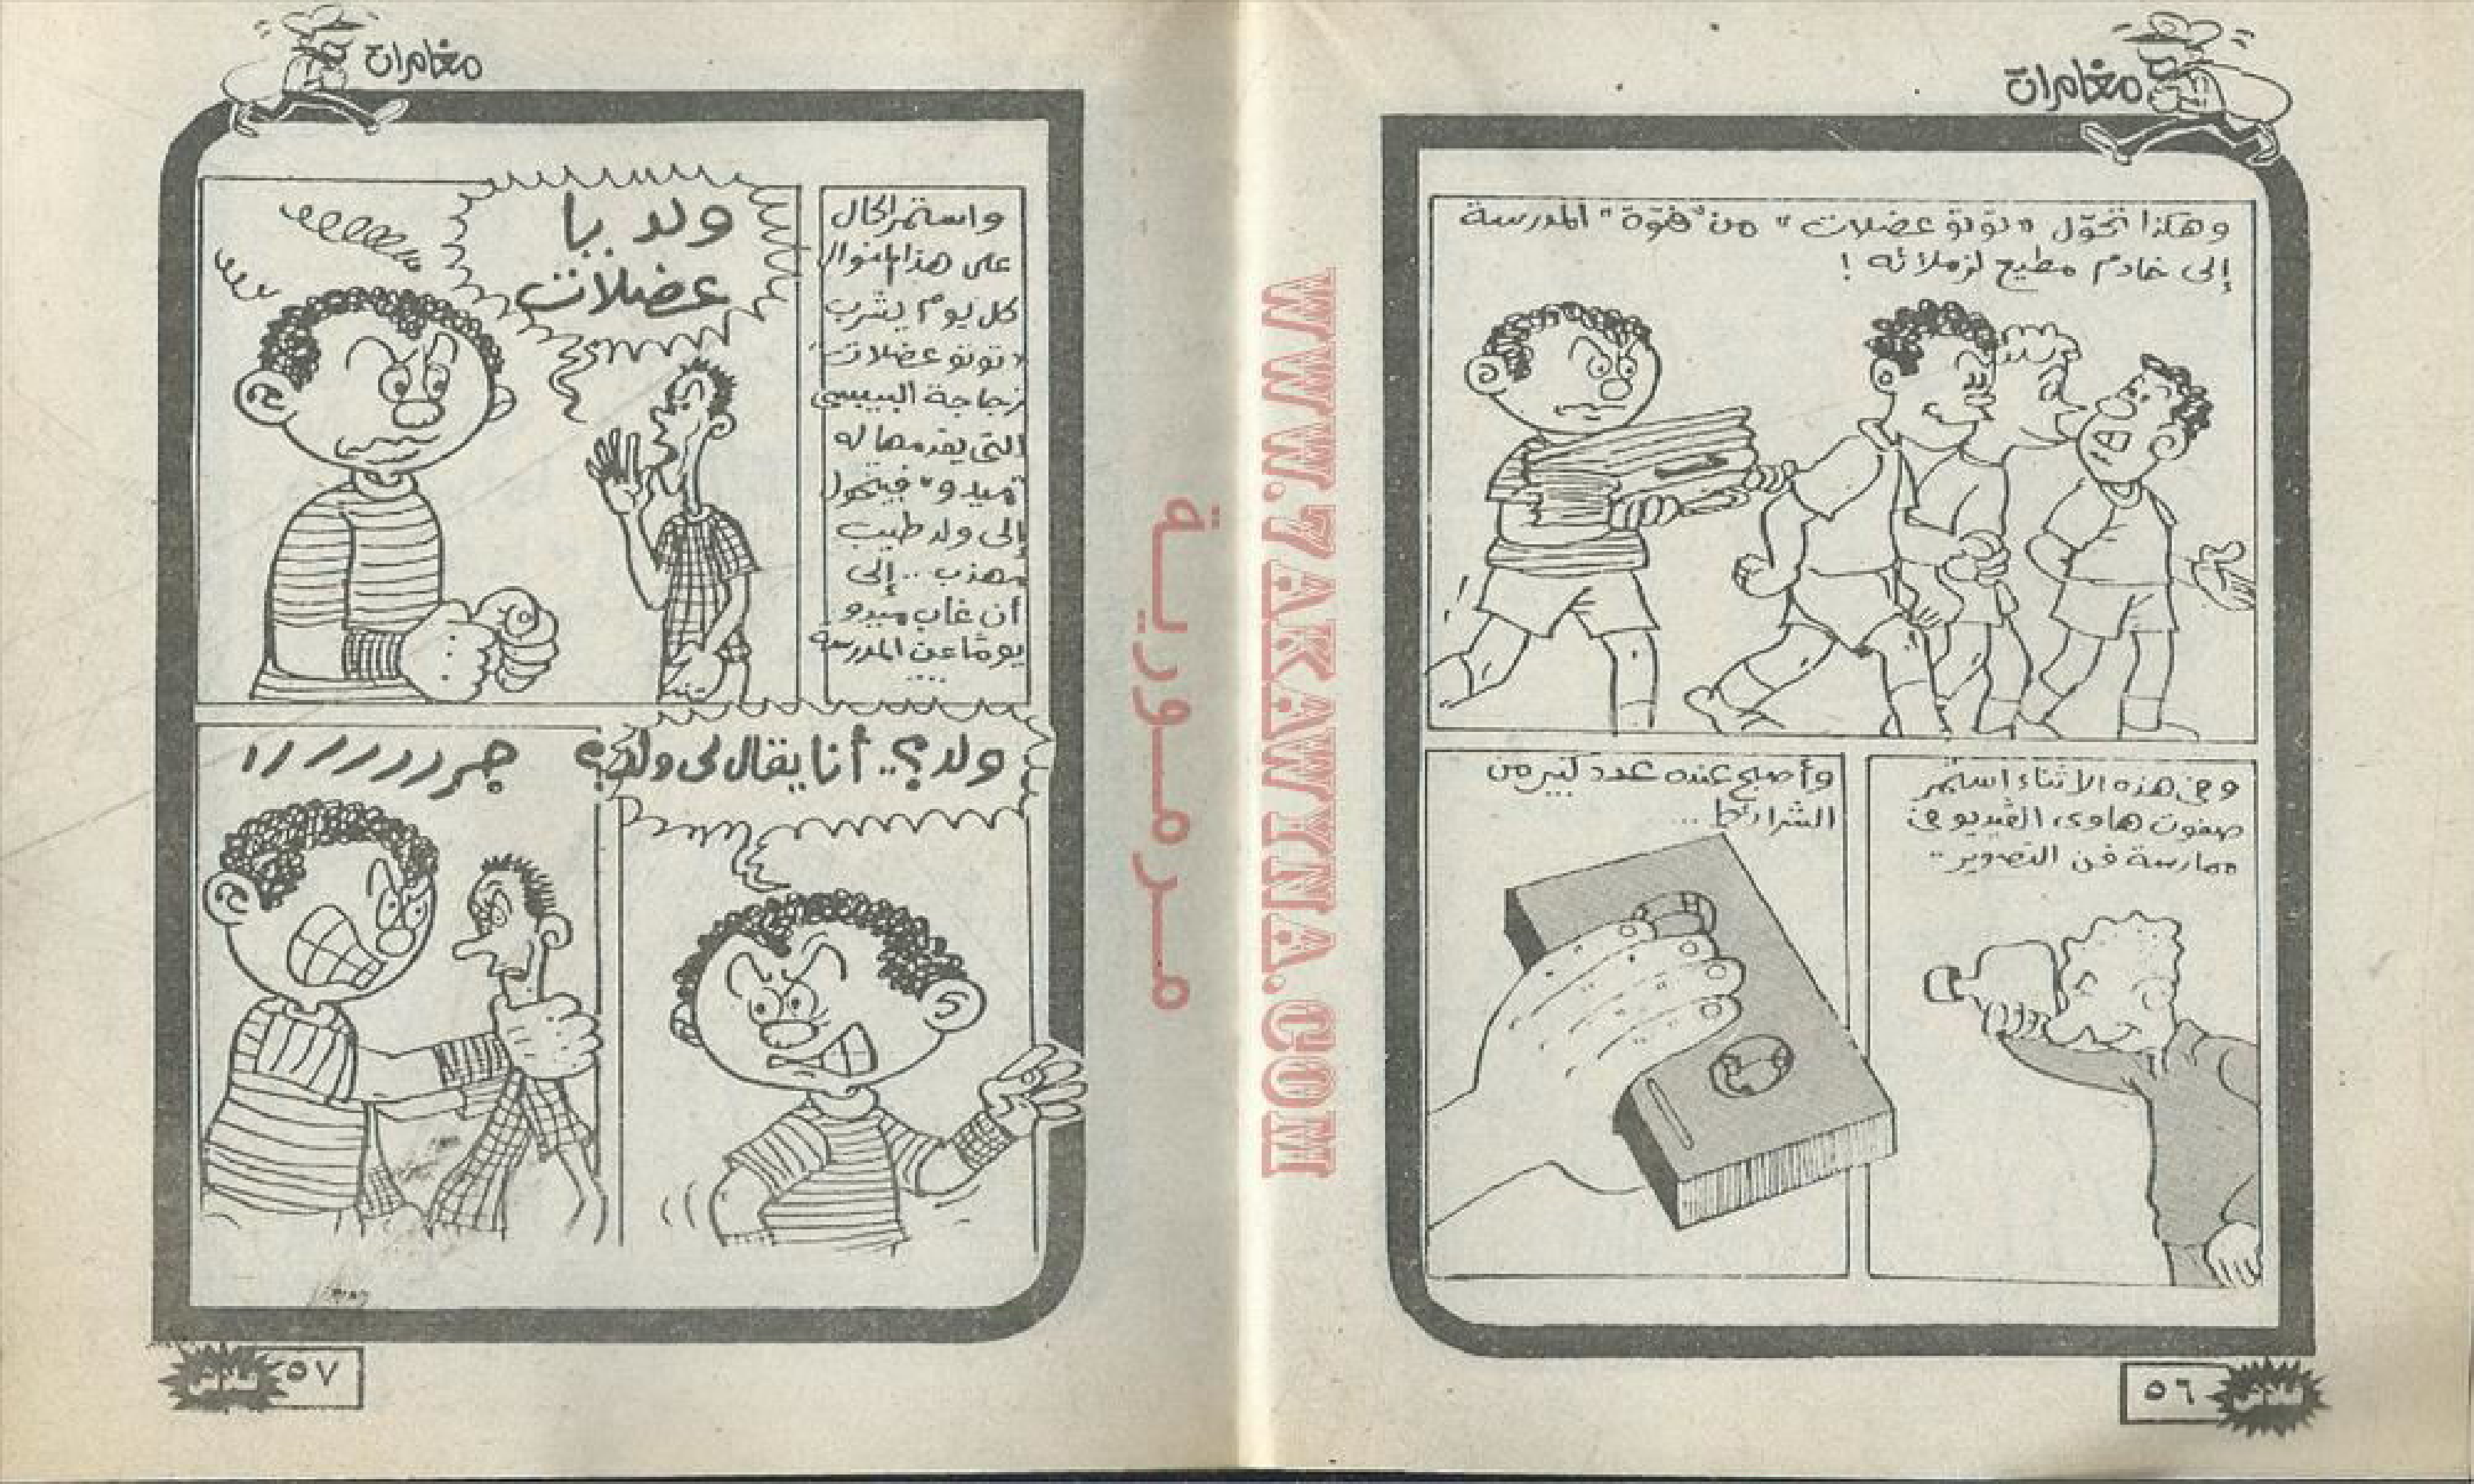 مغامرات
وهكذا تحوّل "توتو عضلات" من "فتوة" المدرسة
إلى خادم مطيع لزملائه !
وفى هذه الاثناء استمر
صفوت هاوى الڤيديو فى
ممارسة فن التصوير ..
وأصبح عنده عدد كبير من
الشرائط ...
٥٦
فلاش
WWW.7AKAWYNA.COM
مرمورية
مغامرات
واستمر الحال
على هذا المنوال
كل يوم يشرب
"توتو عضلات"
زجاجة البيبسى
التى يقدمها له
"ميدو" فيتحول
إلى ولد طيب
مهذب .. إلى
أن غاب ميدو
يومًا عن المدرسة
....
ولد يا
عضلات
ولد ؟.. أنا يقال لى ولد ؟
جررررررر
٥٧
فلاش